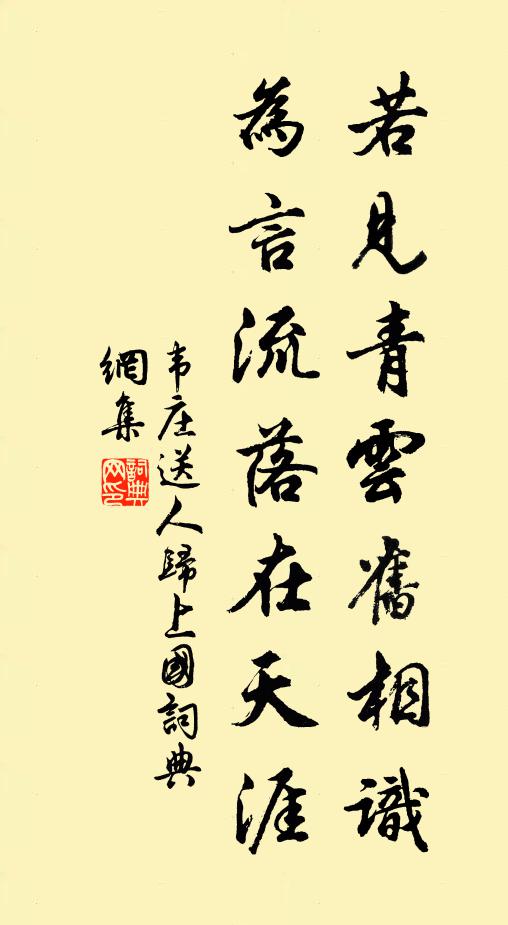 若見青雲舊相識
為言流落在天涯
韦庄送人歸上國詞典
網集
詞典
网印